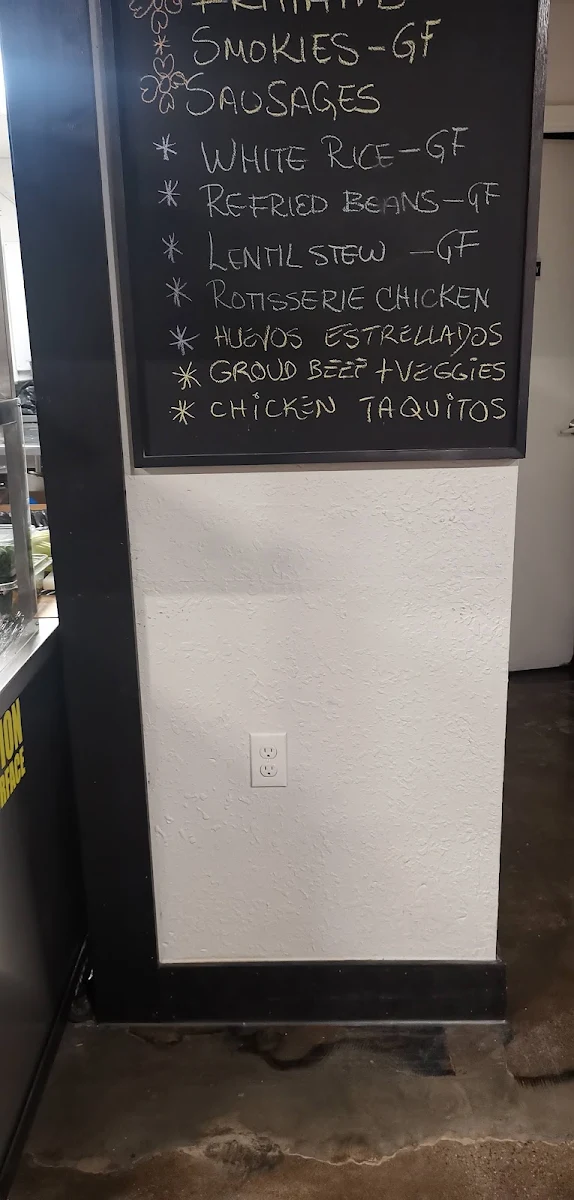 SMOKIES-GF
SAUSAGES
WHITE RICE-GF
REFRIED BEANS-GF
LENTIL STEW -GF
ROTISSERIE CHICKEN
HUEVOS ESTRELLADOS
GROUD BEEF +VEGGIES
CHICKEN TAQUITOS